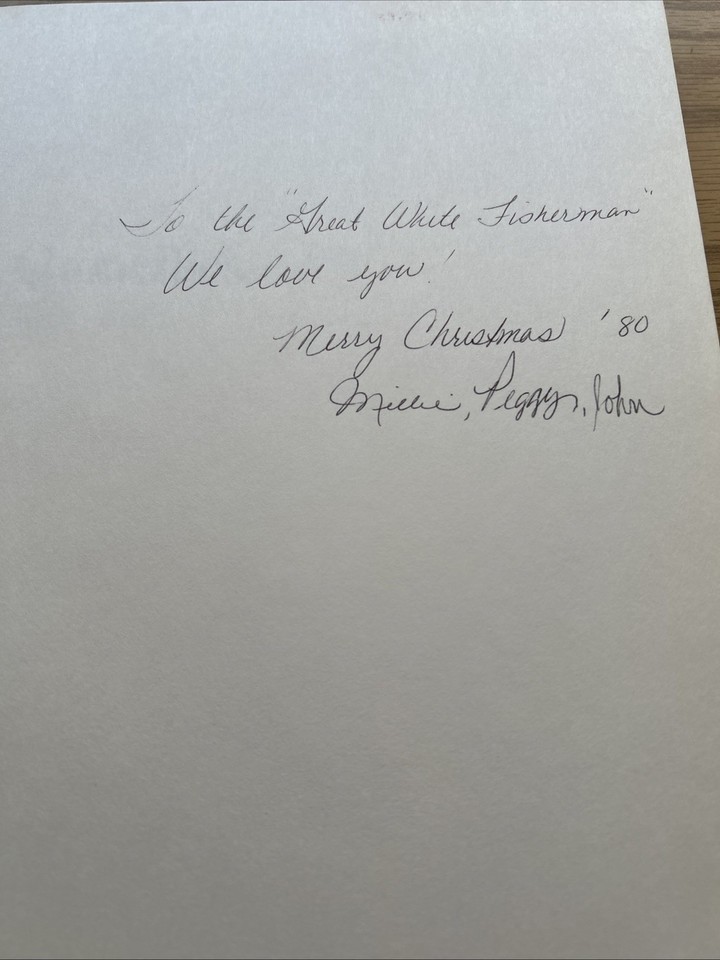 To the "Great White Fisherman"
We love you!
Merry Christmas '80
Millie, Peggy, John